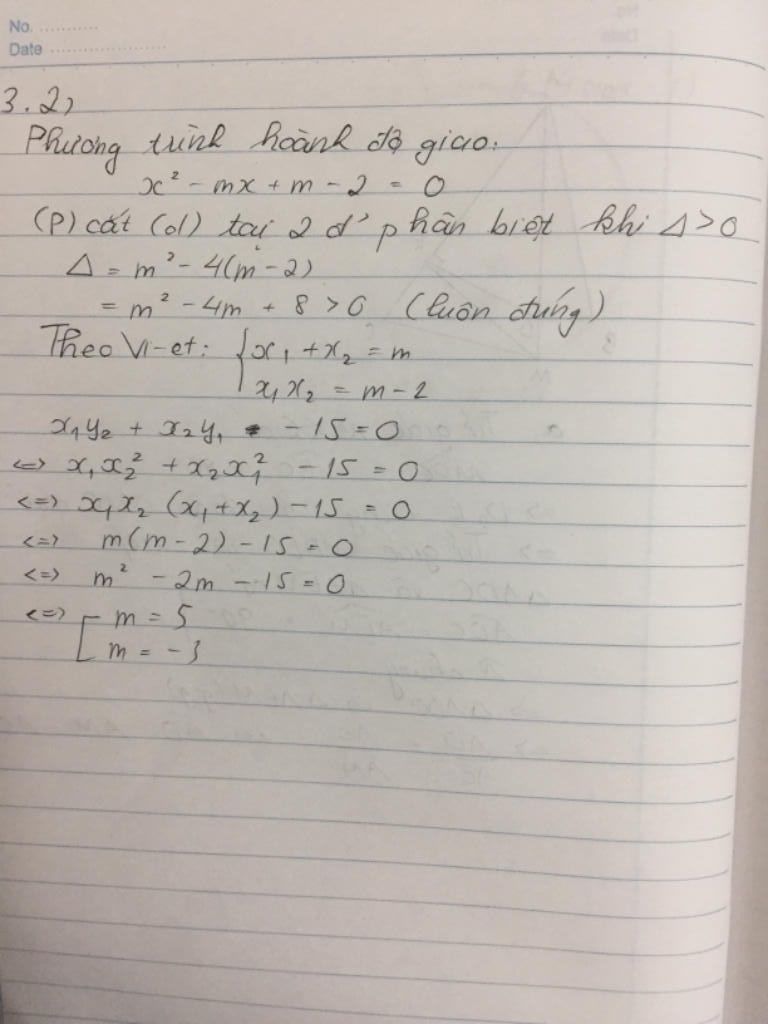 No. ...........
Date .......................
3.2)
Phương trình hoành độ giao:
x² - mx + m - 2 = 0
(P) cắt (d) tại 2 đ' phân biệt khi Δ > 0
Δ = m² - 4(m - 2)
= m² - 4m + 8 > 0 (luôn đúng)
Theo Vi-et: { x₁ + x₂ = m
x₁x₂ = m - 2
x₁y₂ + x₂y₁ - 15 = 0
<=> x₁x₂² + x₂x₁² - 15 = 0
<=> x₁x₂ (x₁ + x₂) - 15 = 0
<=> m(m - 2) - 15 = 0
<=> m² - 2m - 15 = 0
<=> [ m = 5
m = -3